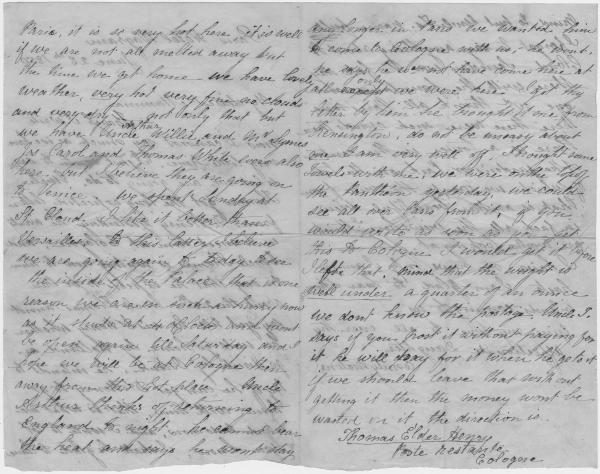 Paris, it is so very hot here it is well
if we are not all melted away but
the time we get home we have lovely
weather, very hot very fine no clouds
and very dry not only that but
we have Uncle Arthur Willie and Mr Symes
and Thomas White were also
here but I believe they are going on
to Venice we spent Sunday at
St Cloud I like it better than
Versailles to this latter I believe
we are going again to-day to see
the inside of the Palace that is one
reason we are in such a hurry now
as it shuts at 4 oclock and wont
be open again till Saturday and I
hope we will be at Cologne then
away from this hot place Uncle
Arthur thinks of returning to
England to night, he cannot bear
the heat and says he wont stay
any longer in Paris we wanted him
to come to Cologne with us, he wont,
he says he wd not have come here at
all only we were here I got thy
letter by him he brought it me from
Kensington, do not be uneasy about
me I am very well off, I bought some
towels with me, we were on the top of
the Pantheon yesterday, we could
see all over Paris from it, if you
would write as soon as you get
this to Cologne I would get it before
I left that, mind that the weight is
well under a quarter of an ounce
we dont know the postage Uncle T.
says if you post it without paying for
it he will pay for it when he gets it
if we should leave that without
getting it then the money wont be
wasted in it the direction is
Thomas Elder Henry
Poste restante
Cologne